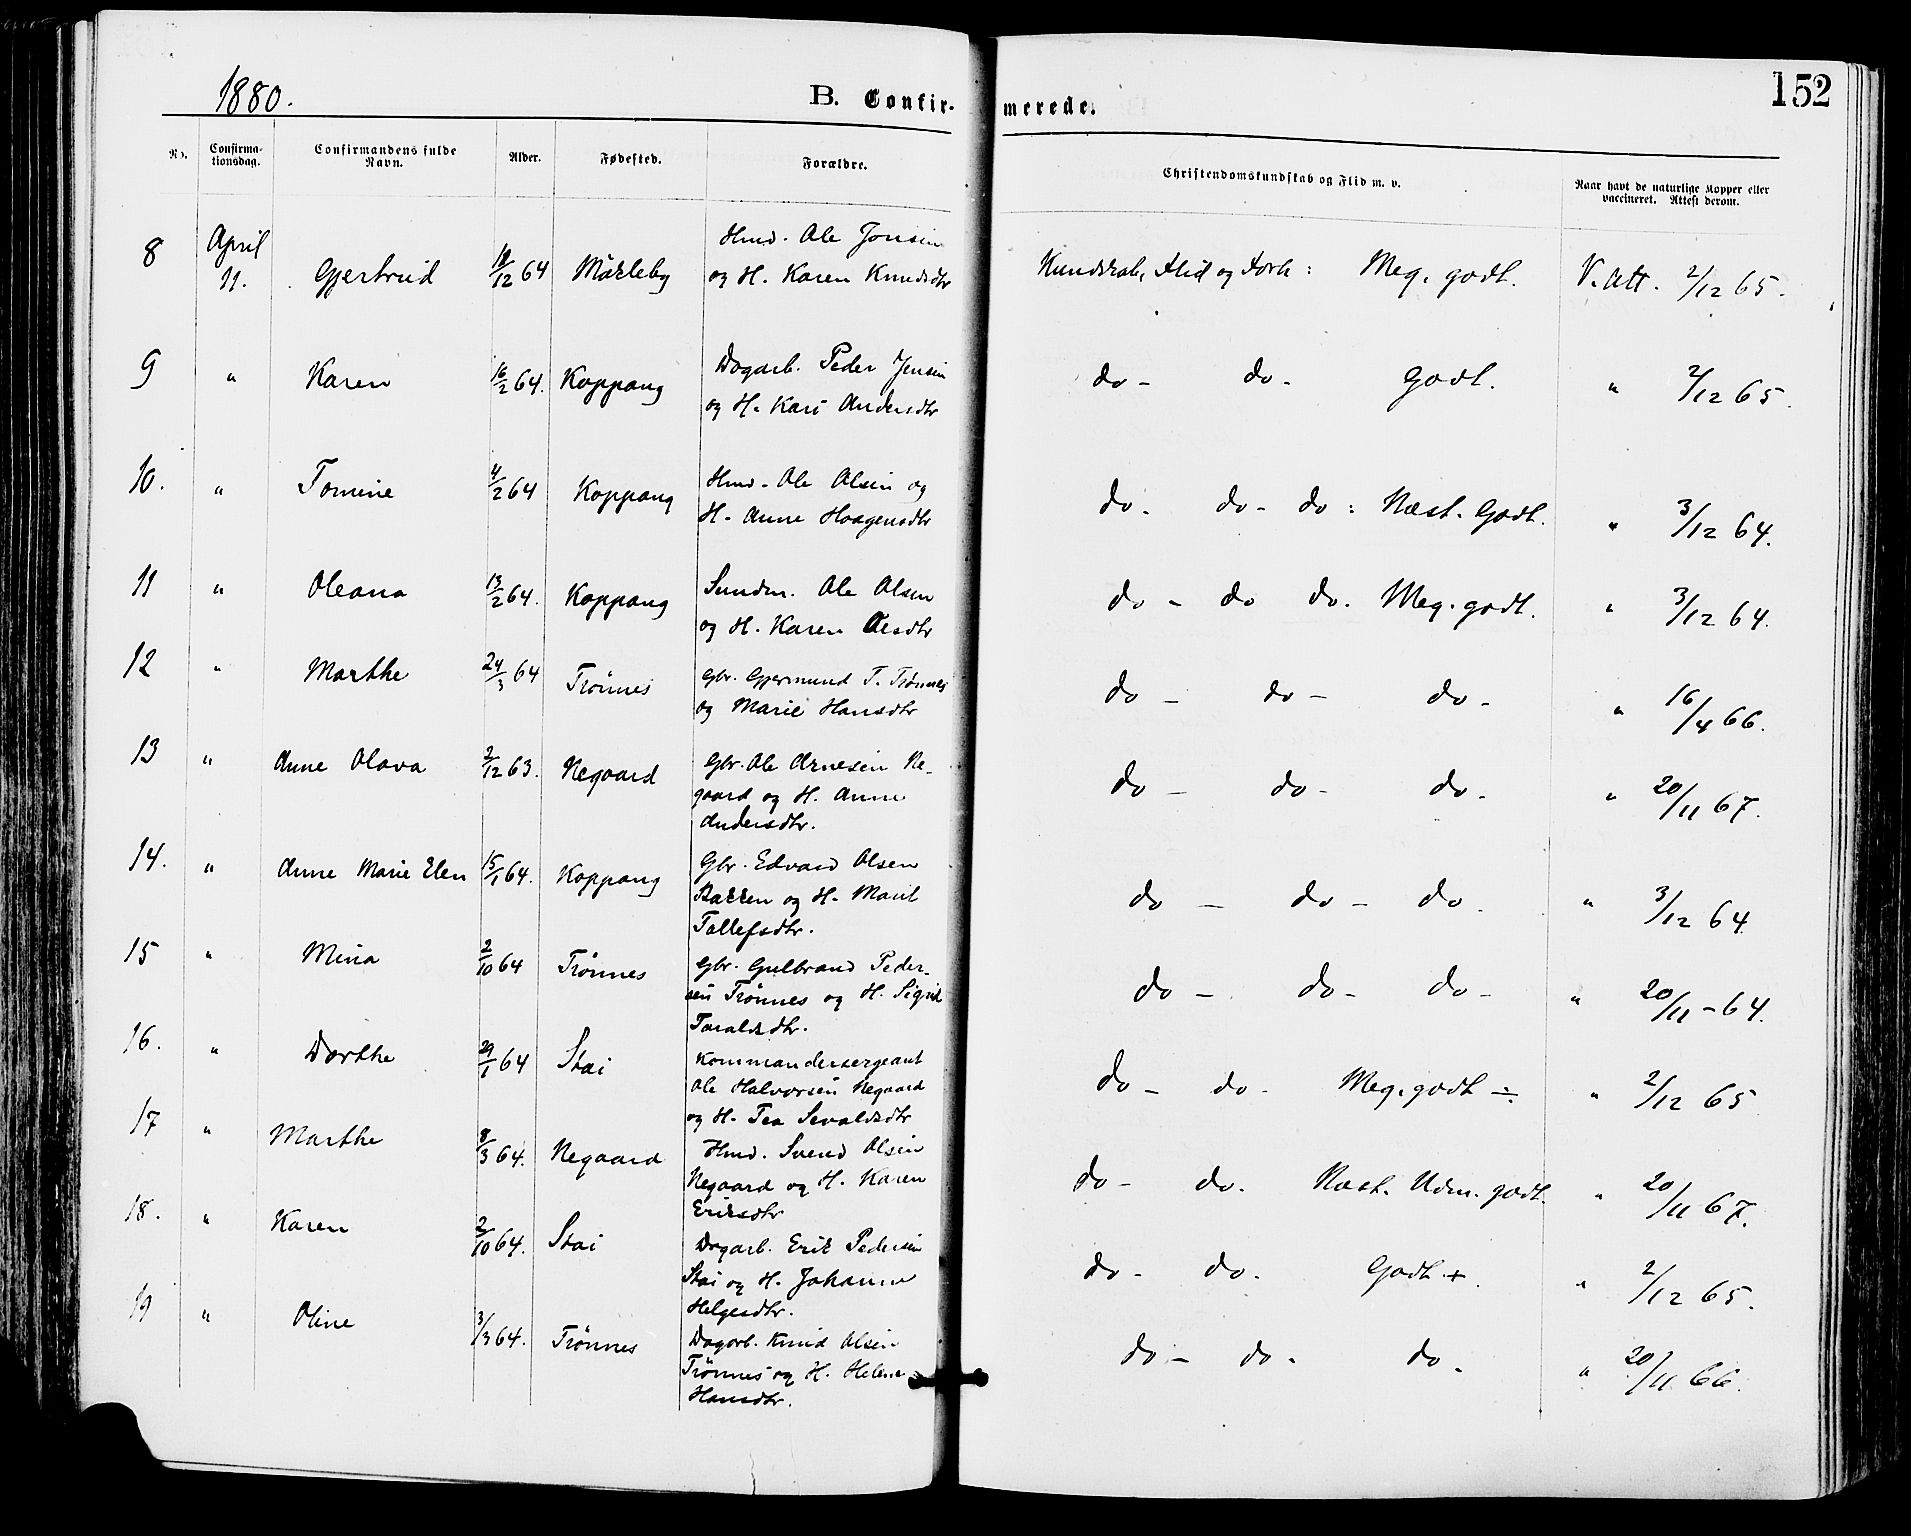 1880.
B. Confirmerede.
152
No. Confirmationsdag. Confirmandens fulde Navn. Alder. Fødested. Forældre. Christendomskundskab og Flid m. v. Naar havt de naturlige Kopper eller vaccineret. Attest derom.
8 April 11. Gjertrud /12 64 Mökleby Hmd. Ole Jonsen
og H. Karen Knudsdtr Kundskab, Flid og Forh: Meg. godt. V. Att. 2/12 65.
9 " Karen 16/2 64. Koppang Dagarb. Peder Jensen
og H. Kari Andersdtr do - do - Godt. " 2/12 65.
10. " Tomine 4/2 64 Koppang Hmd. Ole Olsen og
H. Anne Haagensdtr do - do - do : Næst. Godt. " 3/12 64.
11 " Oleana 13/2 64. Koppang Ole Olsen
og H. Karen Olesdtr do - do do. Meg. godt. " 3/12 64.
12 " Marthe 24/3 64 Trönnes Gbr. Gjermund T. Trönnes
og Marie Hansdtr do - do - do - " 16/4 66.
13 " Anne Olava 2/12 63. Negaard Gbr. Ole Arnesen Ne-
gaard og H. Anne
Andersdtr. do - do - do - " 20/11 67.
14. " Anne Marie Elen 15/1 64. Koppang Gbr. Edvard Olsen
Bakken og H. Marit
Tollefsdtr. do - do - do - " 3/12 64
15 " Mina 2/10 64 Trönnes Gbr. Gulbrand Peder-
sen Trönnes og H. Sigrid
Taraldsdtr. do - do - do - " 20/11 - 64.
16. " Dorthe 29/1 64 Stai Kommandersergeant
Ole Halvorsen Negaard
og H. Tea Sevaldsdtr do - do - Meg. godt ÷ " 2/12 65
17 " Marthe 8/3 64. Negaard Hmd. Svend Olsen
Negaard og H. Karen
Eriksdtr do - do. Næst. Udm. godt. " 20/11 67.
18. " Karen 2/10 64. Stai Dagarb. Erik Pedersen
Stai og H. Johanne
Helgesdtr. do - do. Godt + " 2/12 65.
19 " Oline 3/3 64. Trönnes Dagarb. Knud Olsen
Trönnes og H. Helene
Hansdtr. do - do - do - " 20/11 66.